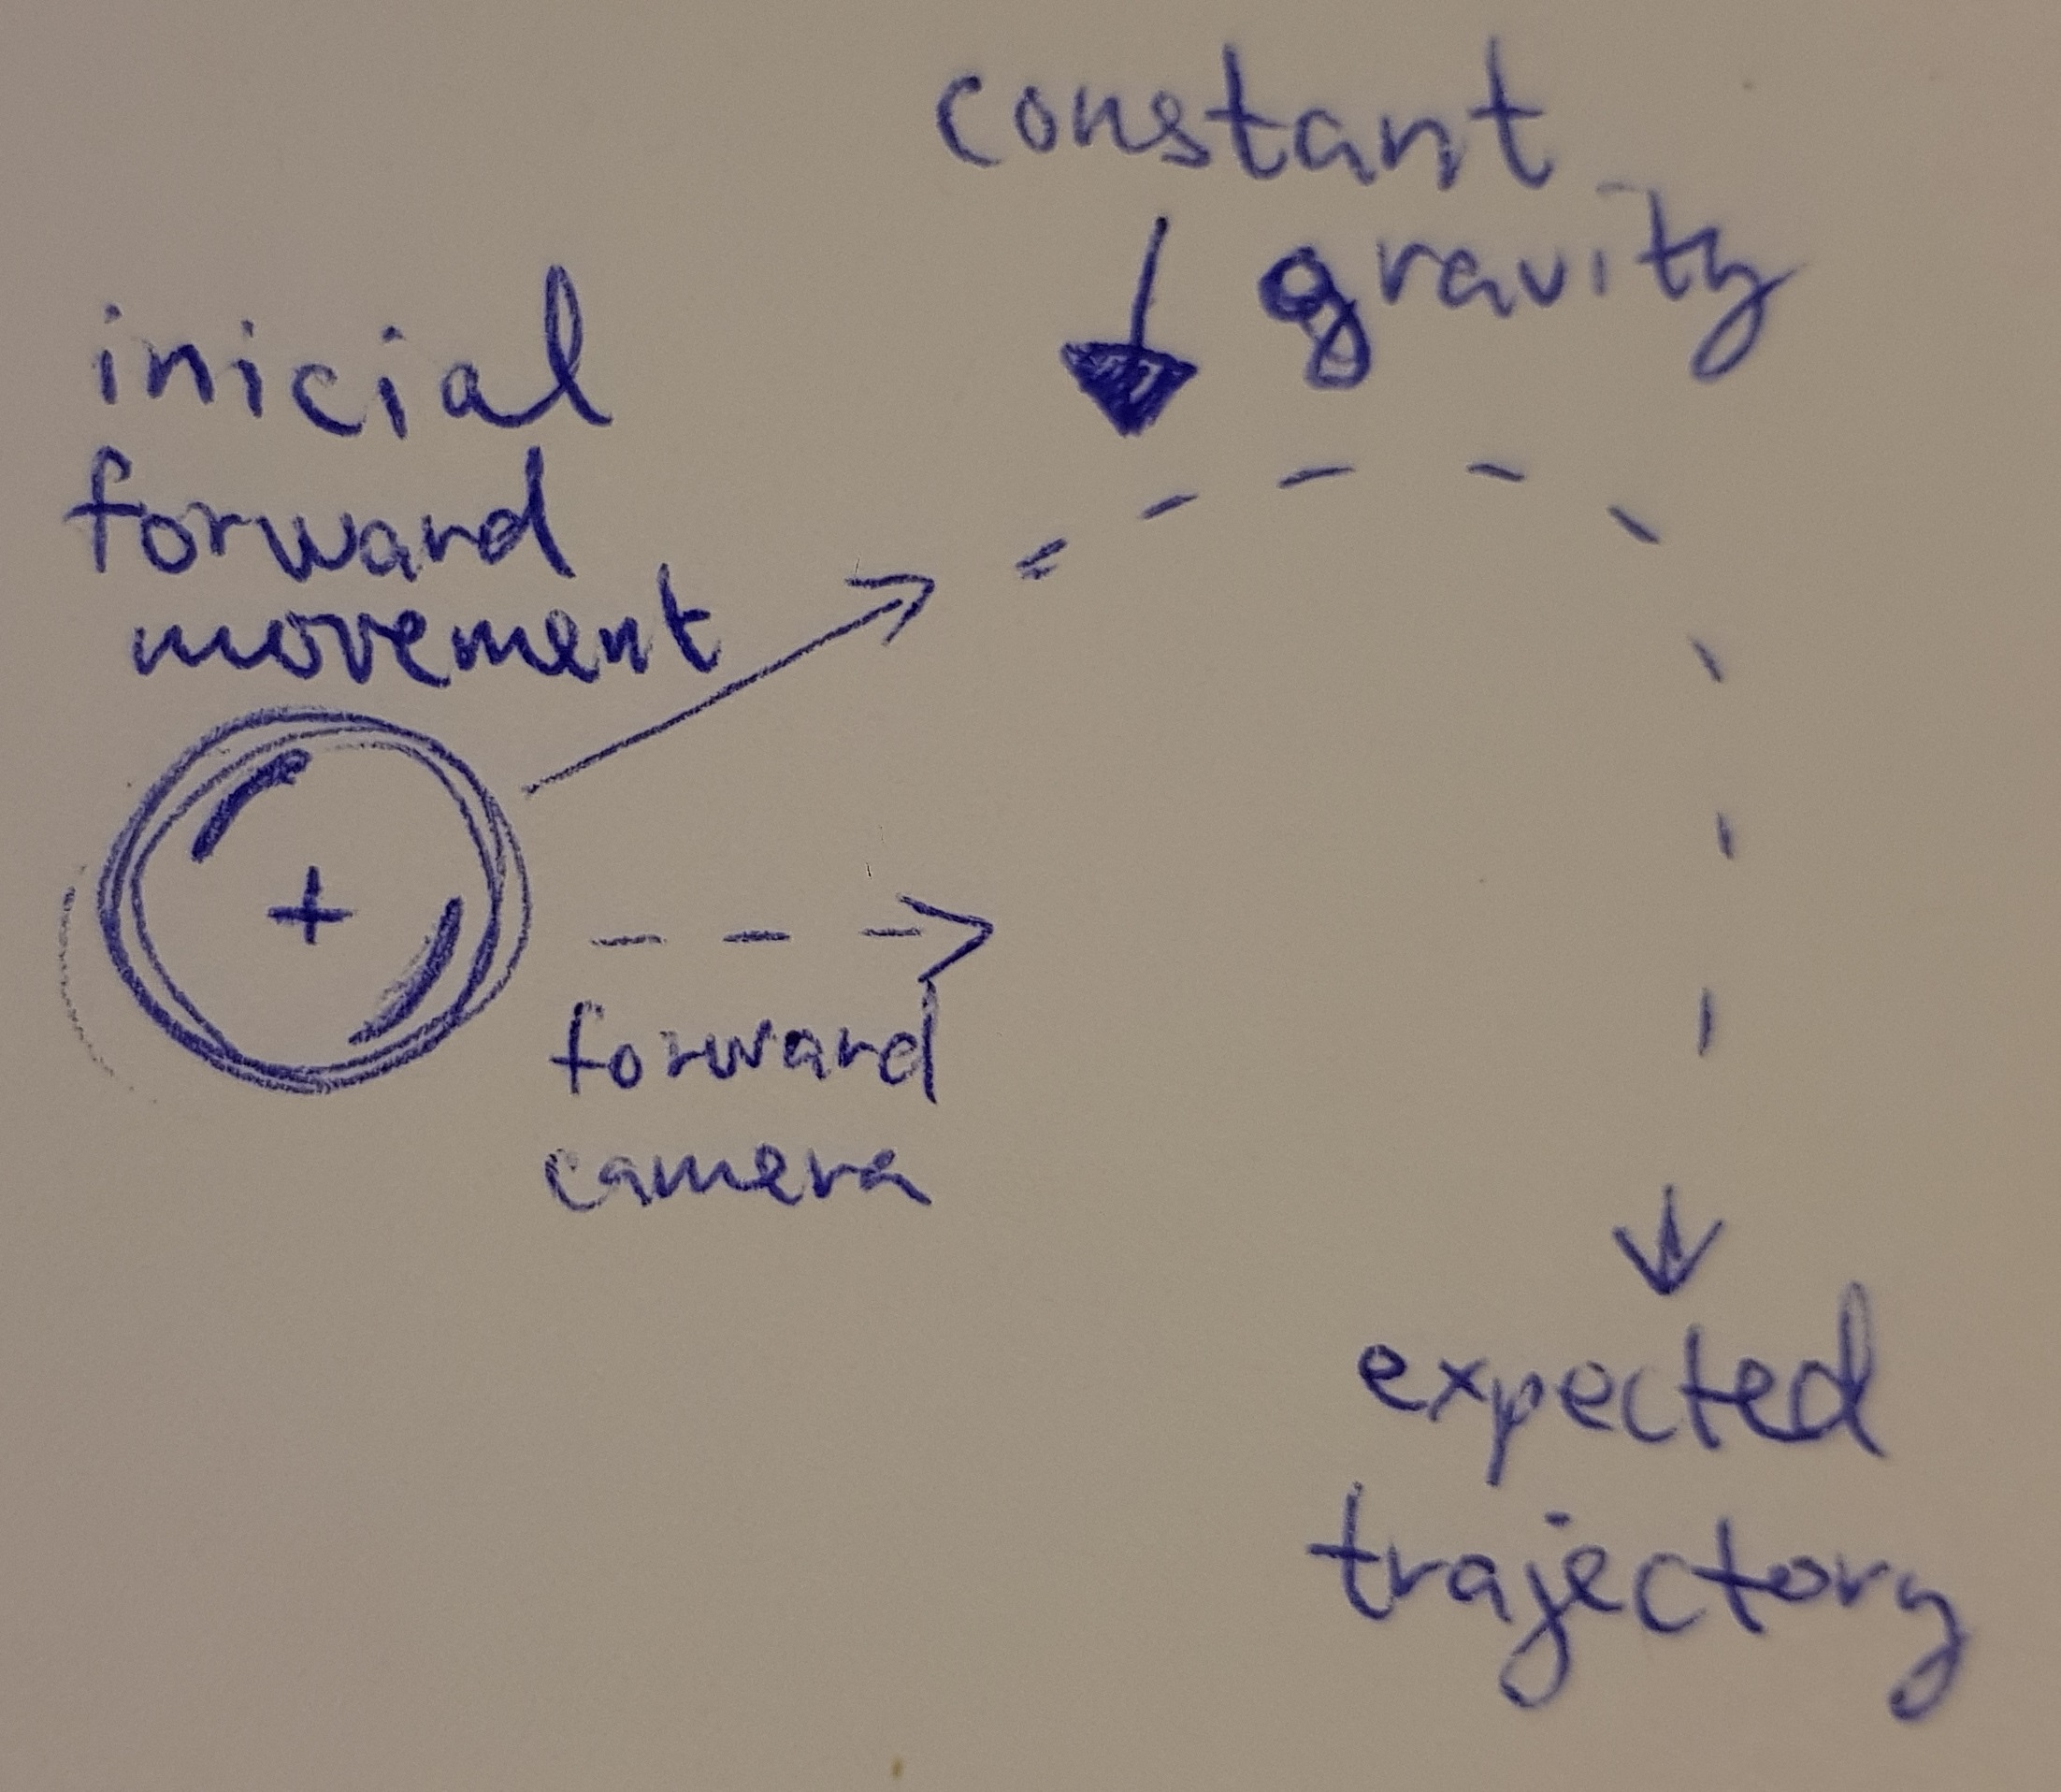 constant
gravity
inicial
forward
movement
+
forward
camera
expected
trajectory